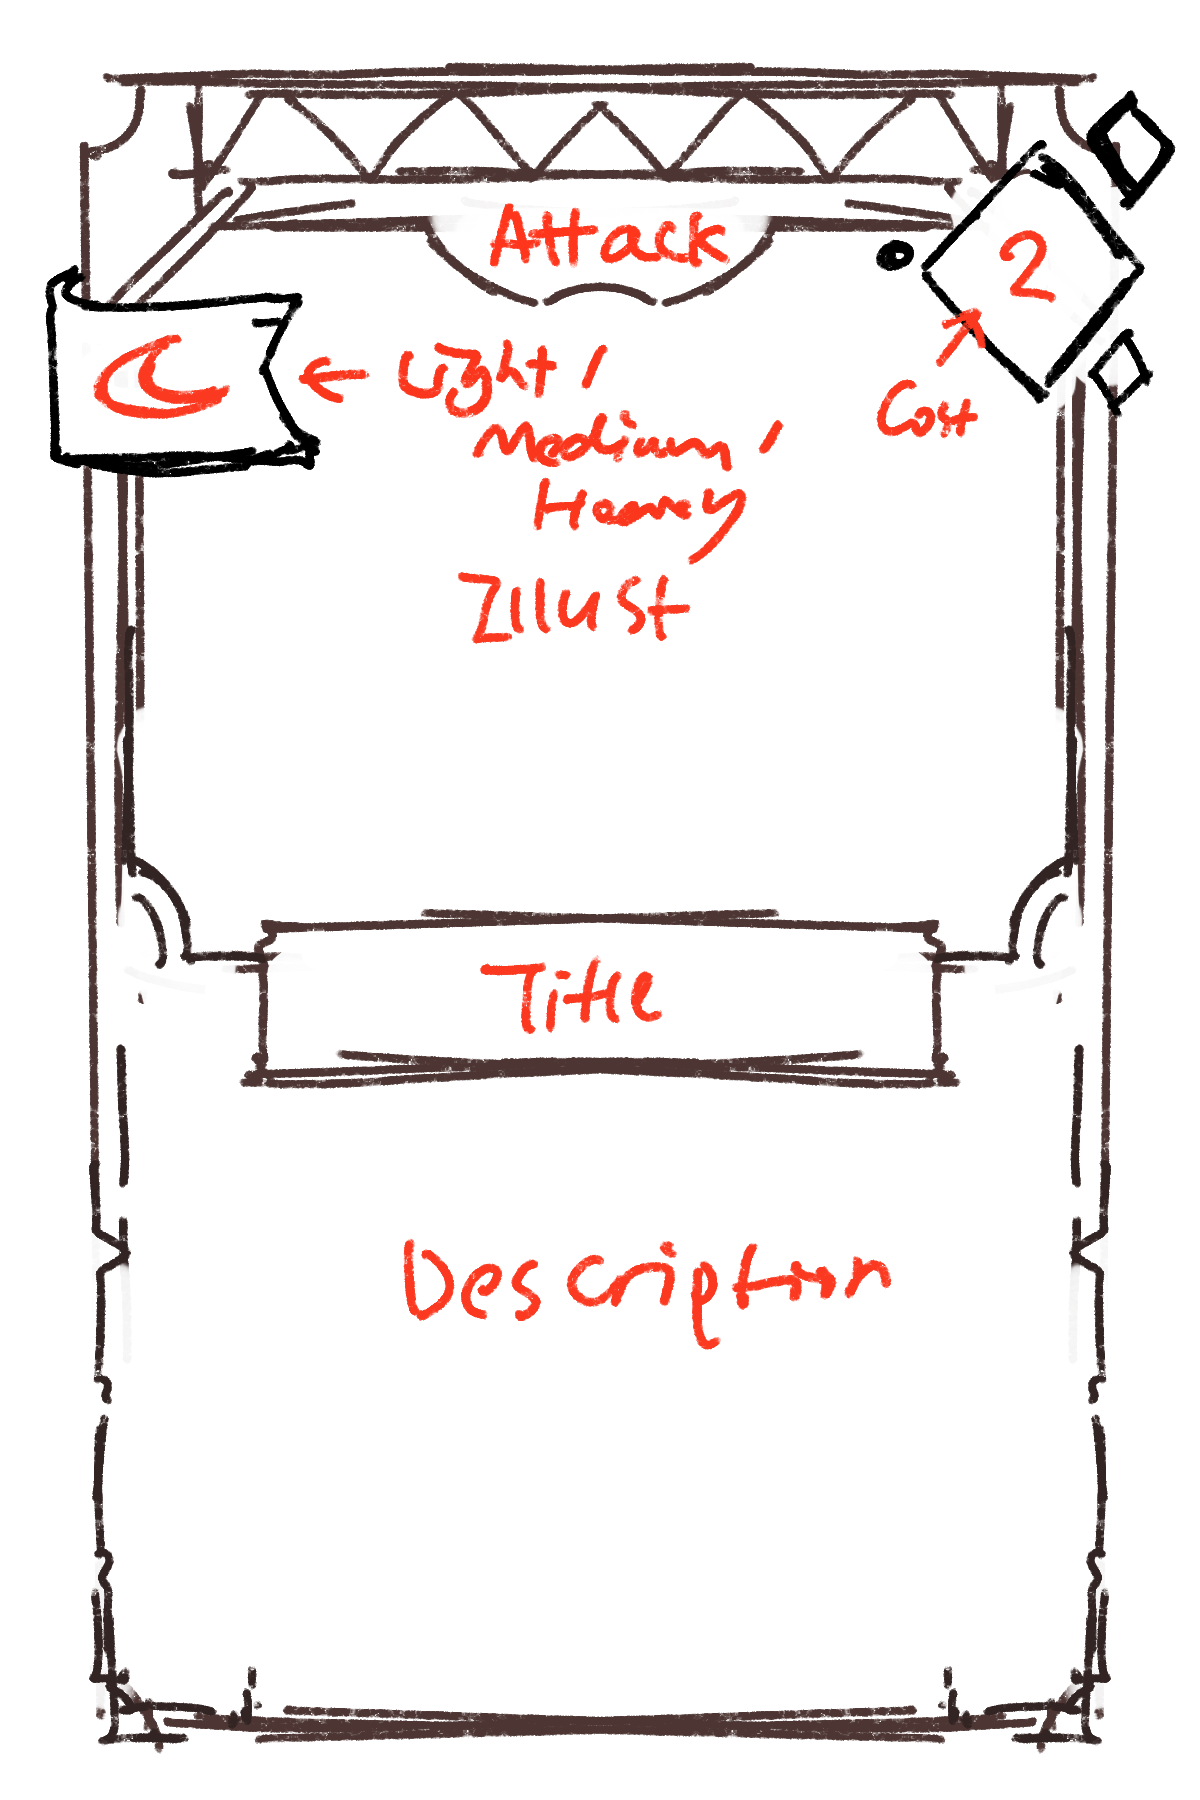 Attack
2
Light /
Medium /
Heavy
Cost
Illust
Title
Description